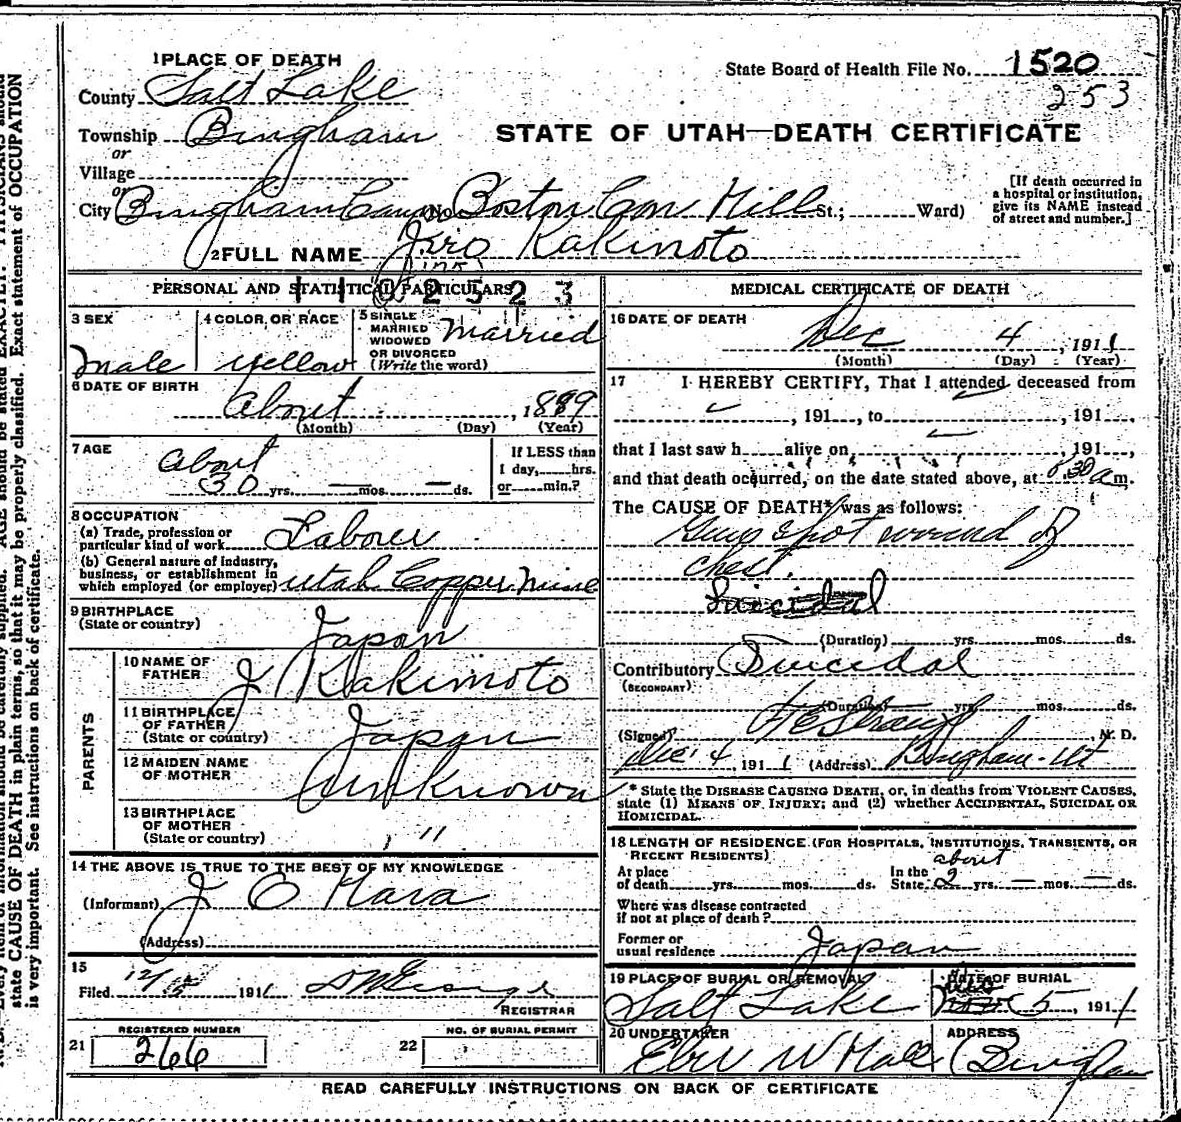 1 PLACE OF DEATH
State Board of Health File No. 1520
253
County Salt Lake
Township Bingham
or
Village
or
STATE OF UTAH—DEATH CERTIFICATE
City Bingham Canyon No. Boston Con Mill St.; Ward)
[If death occurred in a hospital or institution, give its NAME instead of street and number.]
2 FULL NAME Jiro Kakimoto
1102523
PERSONAL AND STATISTICAL PARTICULARS
3 SEX
Male
4 COLOR OR RACE
yellow
5 SINGLE MARRIED WIDOWED OR DIVORCED (Write the word)
Married
6 DATE OF BIRTH
About
(Month) (Day) (Year)
7 AGE
about
30 yrs. — mos. — ds.
If LESS than 1 day, hrs. or min.?
8 OCCUPATION
(a) Trade, profession or particular kind of work Laborer
(b) General nature of industry, business, or establishment in which employed (or employer) Utah Copper Mine
9 BIRTHPLACE
(State or country)
Japan
PARENTS
10 NAME OF FATHER
J Kakimoto
11 BIRTHPLACE OF FATHER (State or country)
Japan
12 MAIDEN NAME OF MOTHER
Unknown
13 BIRTHPLACE OF MOTHER (State or country)
"
14 THE ABOVE IS TRUE TO THE BEST OF MY KNOWLEDGE
(Informant) J O Hara
(Address)
15
Filed 191
REGISTRAR
REGISTERED NUMBER
21 266
NO. OF BURIAL PERMIT
22
MEDICAL CERTIFICATE OF DEATH
16 DATE OF DEATH
Dec 4, 1911
(Month) (Day) (Year)
17 I HEREBY CERTIFY, That I attended deceased from
, 191 , to , 191 ,
that I last saw h alive on , 191 ,
and that death occurred, on the date stated above, at 8 30 a m.
The CAUSE OF DEATH* was as follows:
Gun shot wound of
chest.
Suicidal
(Duration) yrs. mos. ds.
Contributory Suicidal
(SECONDARY)
(Duration) yrs. mos. ds.
(Signed) , M. D.
Dec 4 1911 (Address) Bingham Ut
* State the DISEASE CAUSING DEATH, or, in deaths from VIOLENT CAUSES,
state (1) MEANS OF INJURY; and (2) whether ACCIDENTAL, SUICIDAL OR
HOMICIDAL.
18 LENGTH OF RESIDENCE (FOR HOSPITALS, INSTITUTIONS, TRANSIENTS, OR
RECENT RESIDENTS)
about
At place of death yrs. mos. ds. In the State 2 yrs. — mos. — ds.
Where was disease contracted
if not at place of death?
Former or
usual residence Japan
19 PLACE OF BURIAL OR REMOVAL
Salt Lake
DATE OF BURIAL
5, 1911
20 UNDERTAKER
Eber W Hall
ADDRESS
Bingham
READ CAREFULLY INSTRUCTIONS ON BACK OF CERTIFICATE
state CAUSE OF DEATH in plain terms, so that it may be properly classified. Exact statement of OCCUPATION
is very important. See instructions on back of certificate.